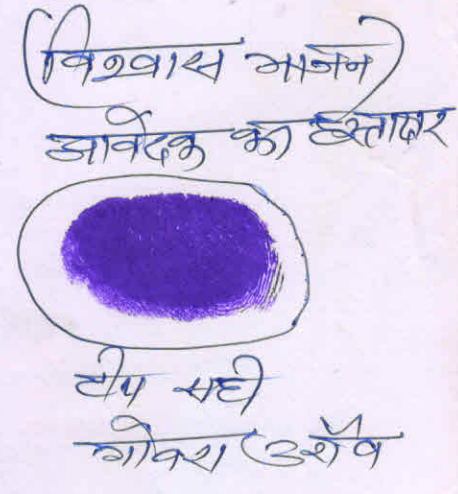 (विश्वास भाजन)
आवेदक का हस्ताक्षर
टीप सही
गोवरा उराँव